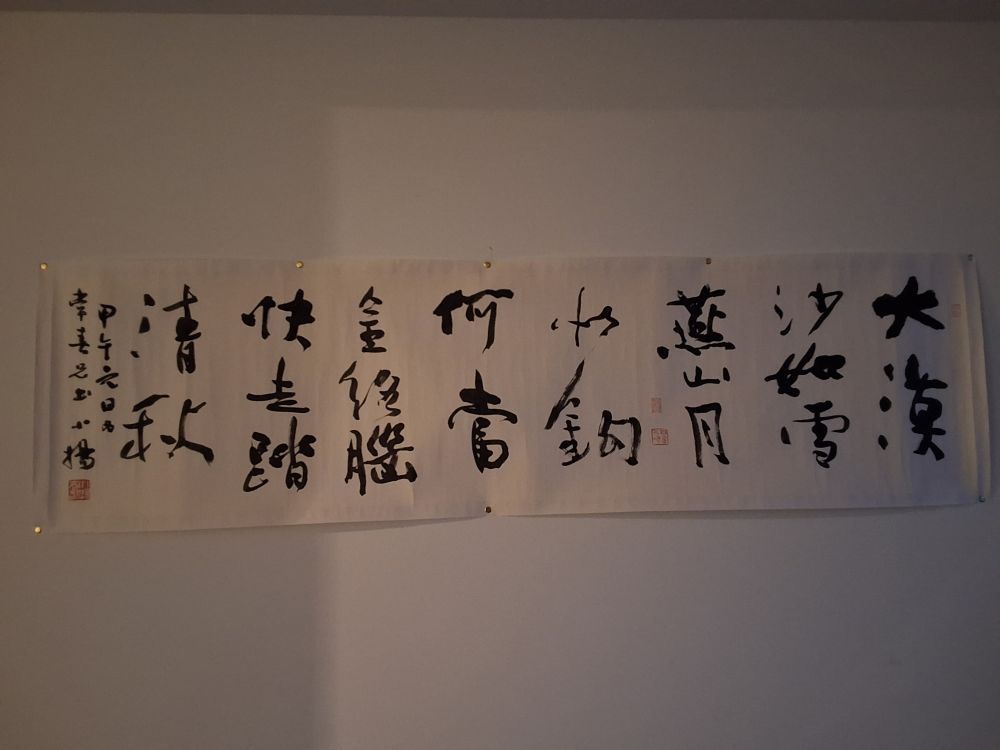 大漠
沙如雪
燕山月
似鉤
何當
金絡腦
快走踏
清秋
甲午六月为
常春兄书小楊